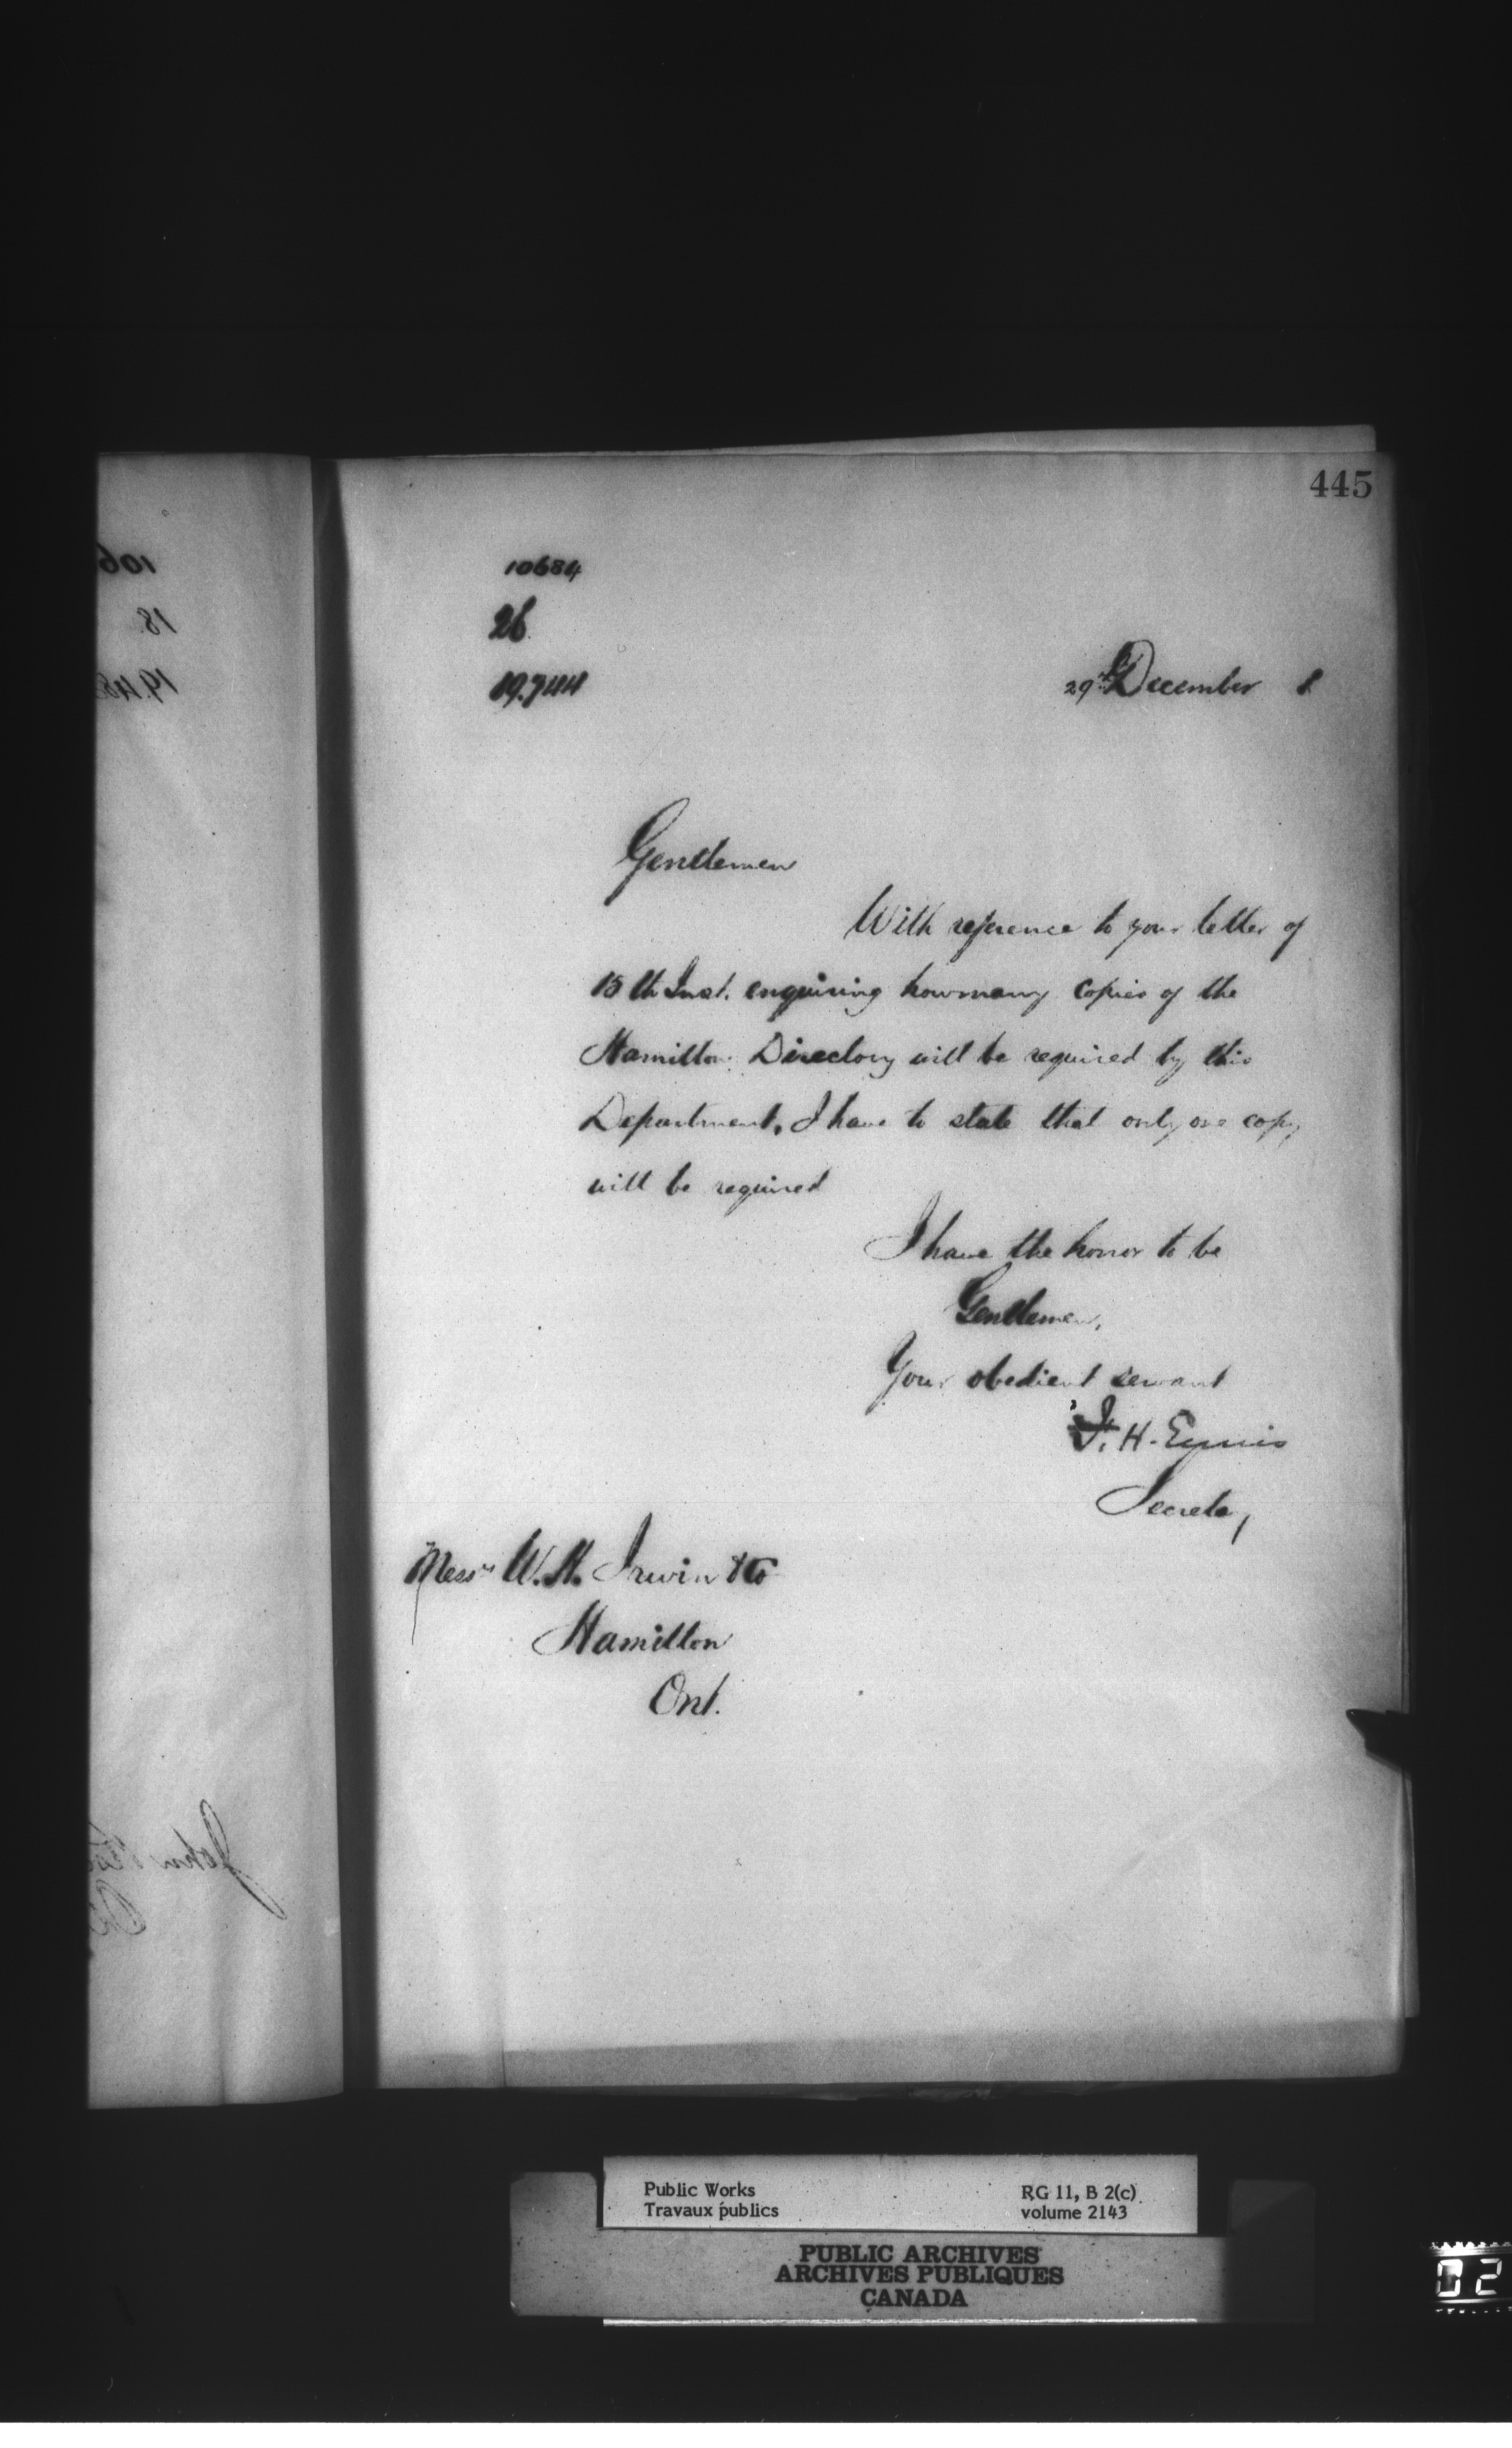 445
10684
26
19.744
29th December 1
Gentlemen
With reference to your letter of
15th Inst. enquiring how many copies of the
Hamilton Directory will be required by this
Department, I have to state that only one copy
will be required
I have the honor to be
Gentlemen,
Your obedient servant
F. H. Ennis
Secretary
Messrs W. H. Irwin & Co
Hamilton
Ont.
106
18
19.48
John
Public Works
Travaux publics
RG 11, B 2(c)
volume 2143
PUBLIC ARCHIVES
ARCHIVES PUBLIQUES
CANADA
02